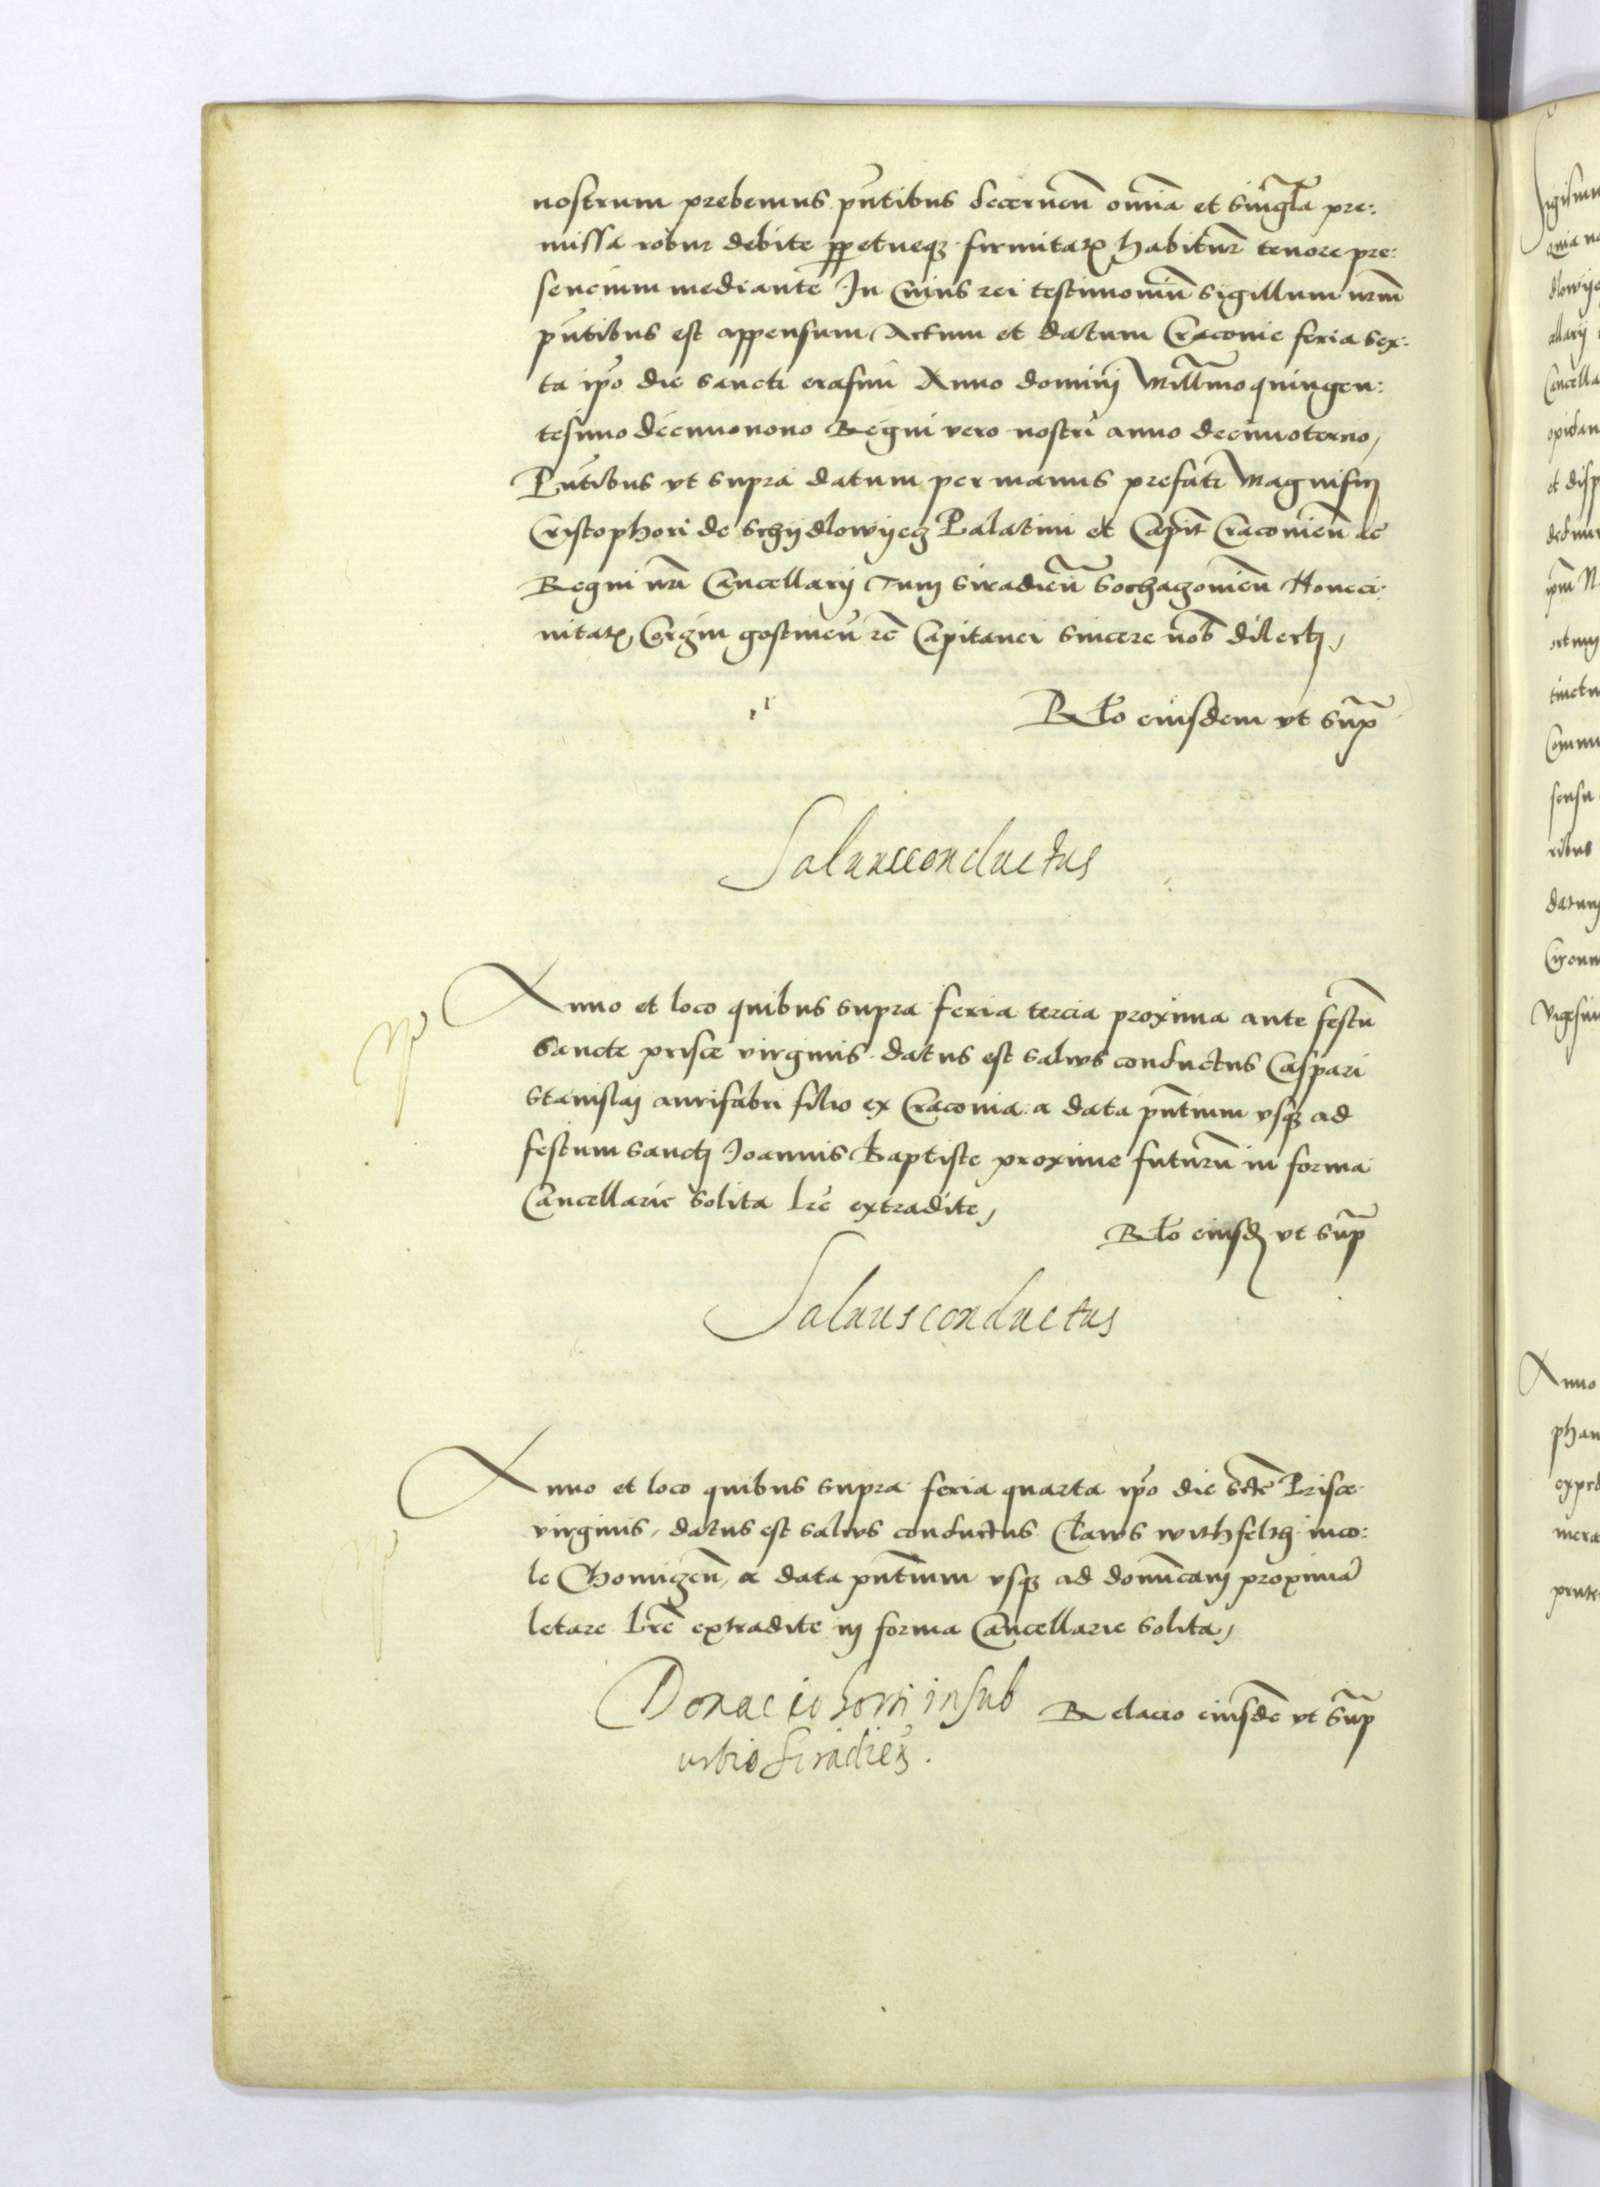 nostrum prebemus pñtibus decernen̄ om̄ia et singl̄a pre:
missa robur debite pp̱etueqꝫ firmitatꝭ habitur̄ tenore pre:
sencium mediante In Cuius rei testimoniū sigillum nr̄m
pñtibus est appensum Actum et datum Cracovie feria sex:
ta ip̄o die sancti erasmi Anno domini Mill̄mo quingen:
tesimo decimonono Regni vero nostri anno decimoterno,
Pñtibus vt supra datum per manus prefati Magnifici
Cristophori de Schÿdlowÿecz Palatini et Capit̄ Cracovien̄ ac
Regni nr̄i Cancellarij Tum Siradien̄ Sochaczovien̄
gostinen̄ rc̄ Capitanei sincere nob̄ dilecti,
Rl̄o eiusdem vt sup̄
Saluusconductus
Anno et loco quibus supra feria tercia proxima ante festū
Sancte prisce virginis datus est saluus conductus Caspari
Stanislai aurifabri filio ex Cracovia a data pñtium vsqꝫ ad
festum sancti Joannis Baptiste proxime futurū in forma
Cancellarie solita lr̄e extradite,
Rl̄o eiusd̄ vt sup̄
Saluusconductus
Anno et loco quibus supra feria quarta ip̄o die sc̄te Prisce
virginis, datus est saluus conductus Claws withfeltz inco:
le a data pñtium vsqꝫ ad domīcam proximā
letare lr̄e extradite in forma Cancellarie solita,
Donacio horti in sub
urbio Siradieñ.
Relacio eiusdē vt sup̄